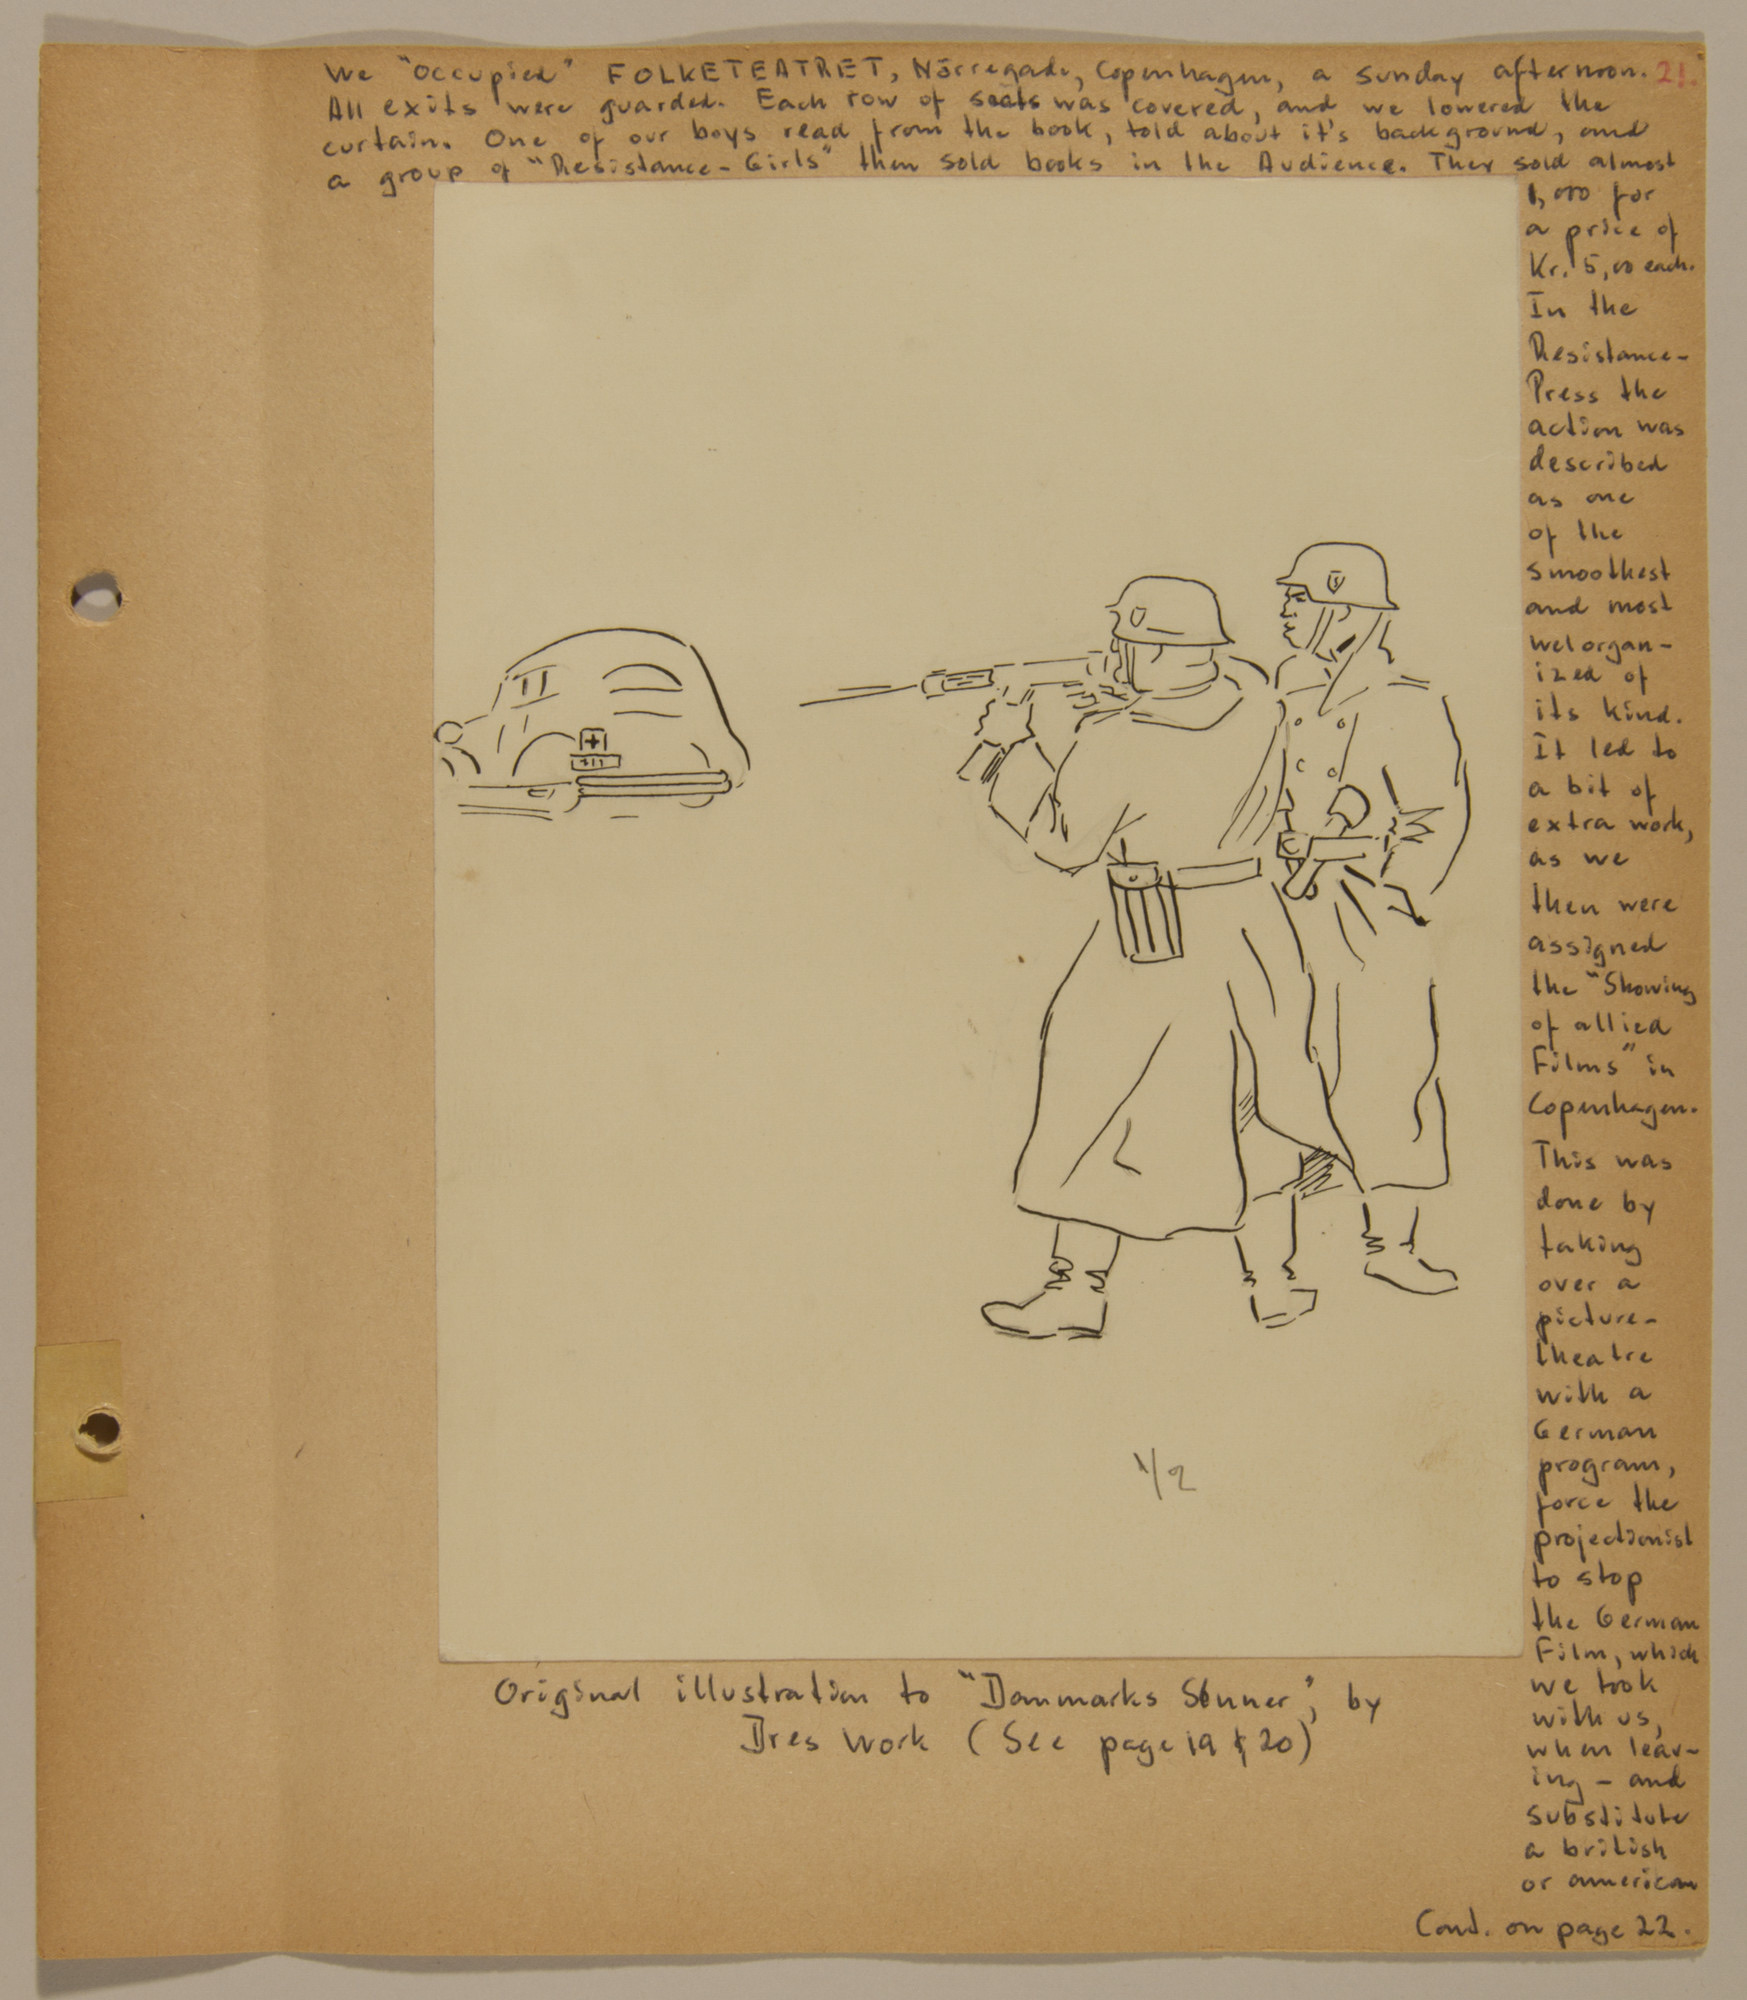 We "occupied" FOLKETEATRET, Nörregade, Copenhagen, a sunday afternoon. 21.
All exits were guarded. Each row of seats was covered, and we lowered the
curtain. One of our boys read from the book, told about it's background, and
a group of "Resistance-Girls" then sold books in the Audience. They sold almost
1,000 for
a price of
Kr. 5,00 each.
In the
Resistance-
Press the
action was
described
as one
of the
smoothest
and most
welorgan-
ized of
its kind.
It led to
a bit of
extra work,
as we
then were
assigned
the "Showing
of allied
Films" in
Copenhagen.
This was
done by
taking
over a
picture-
theatre
with a
German
program,
force the
projectionist
to stop
the German
Film, which
we took
with us,
when leav-
ing - and
substitute
a british
or american
Cont. on page 22.
1/2
Original illustration to "Danmarks Sönner", by
Dres Work (See page 19 & 20)